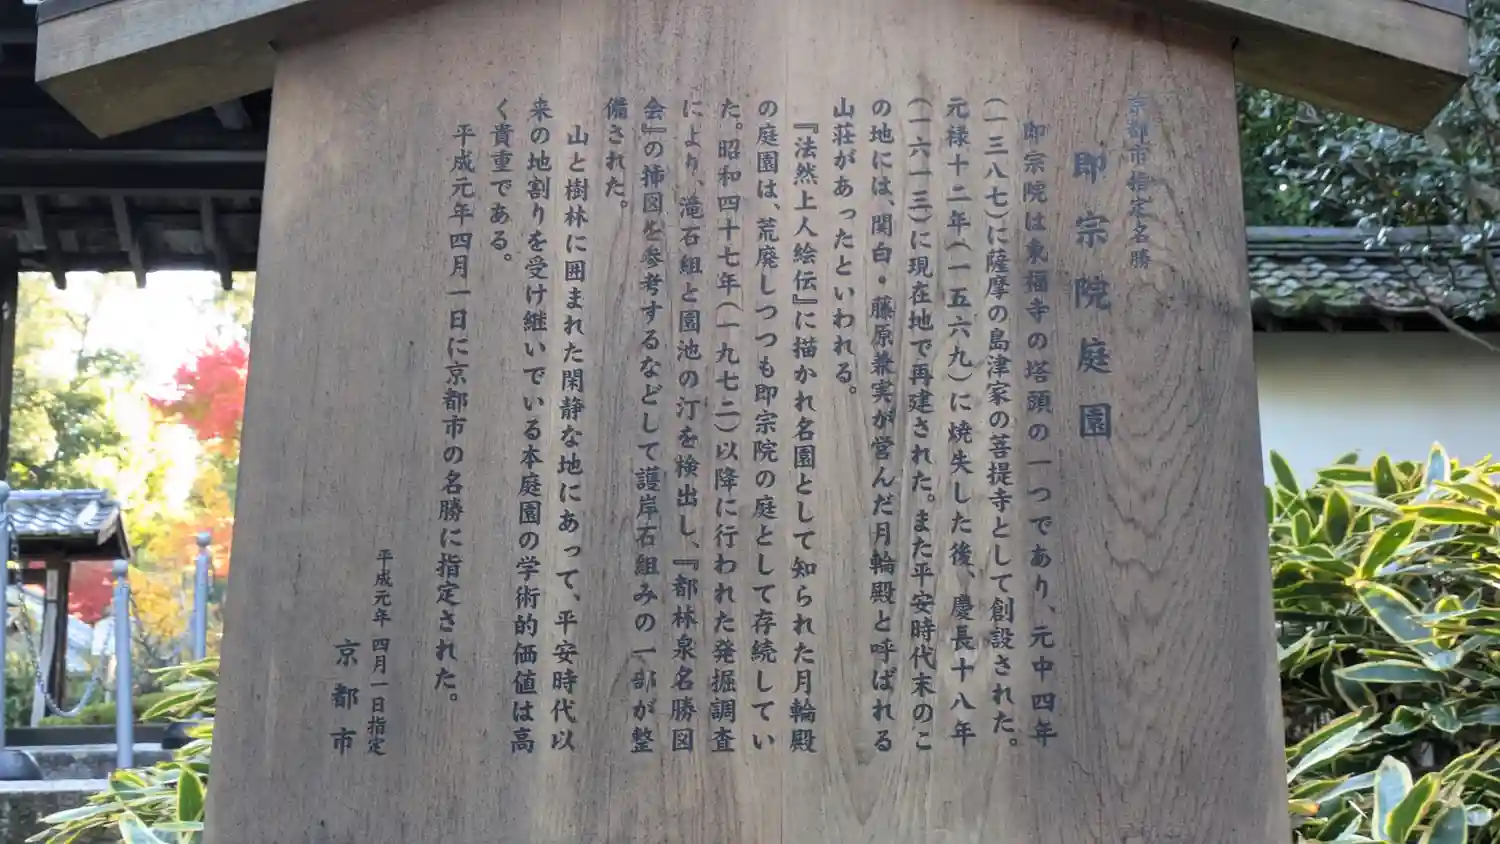 京都市指定名勝
即宗院庭園
即宗院は東福寺の塔頭の一つであり、元中四年
(一三八七)に薩摩の島津家の菩提寺として創設された。
元禄十二年(一五六九)に焼失した後、慶長十八年
(一六一三)に現在地で再建された。また平安時代末のこ
の地には、関白・藤原兼実が営んだ月輪殿と呼ばれる
山荘があったといわれる。
『法然上人絵伝』に描かれ名園として知られた月輪殿
の庭園は、荒廃しつつも即宗院の庭として存続してい
た。昭和四十七年(一九七二)以降に行われた発掘調査
により、滝石組と園池の汀を検出し、『都林泉名勝図
会』の挿図を参考するなどして護岸石組みの一部が整
備された。
山と樹林に囲まれた閑静な地にあって、平安時代以
来の地割りを受け継いでいる本庭園の学術的価値は高
く貴重である。
平成元年四月一日に京都市の名勝に指定された。
平成元年四月一日指定
京都市